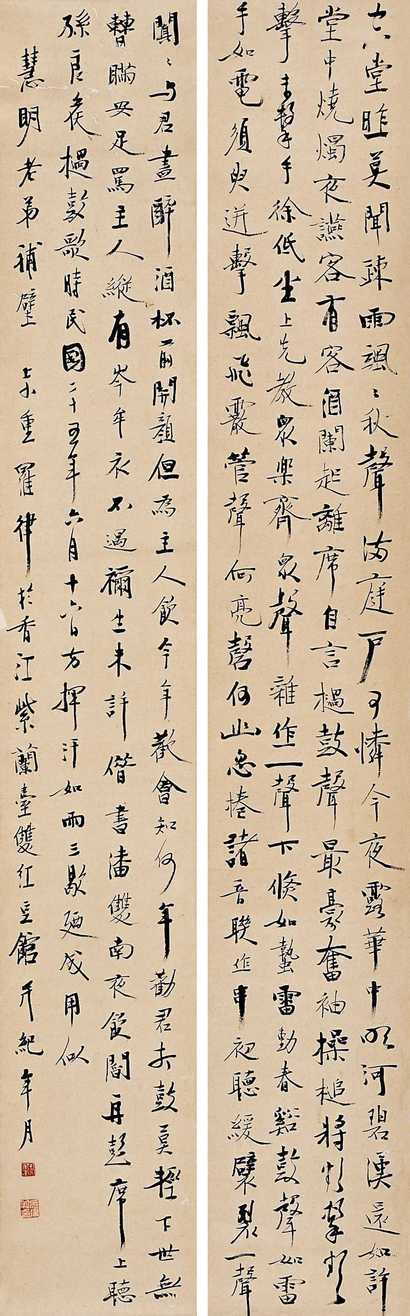 六堂暄莫聞疎雨颯〻秋聲滿庭戶可憐今夜露華中明河碧漢還如許
堂中燒燭夜讌客有客酒闌起離席自言檛鼓聲最豪奮袖操槌將欲擊欲
擊未擊手徐低坐上先教眾樂齊眾聲雜作一聲下倏如蟄雷動春谿鼓聲如雷
手如電須臾迸擊飄飛霰管聲何亮磬何幽忽捲諸音聯作串初聽緩劈裂一聲
聞〻與君盡醉酒杯前開顏但為主人飲今年歡會知何年勸君求鼓莫輕下世無
瞞無足罵主人縱有岑牟衣不遇禰生未許借書潘雙南夜飲閣再彭席上聽
孫良矦檛鼓歌時民國二十五年六月十六日方揮汗如雨三歇廼成用似
慧明老弟補壁 重羅律於香江紫蘭臺雙紅豆館 紀年月